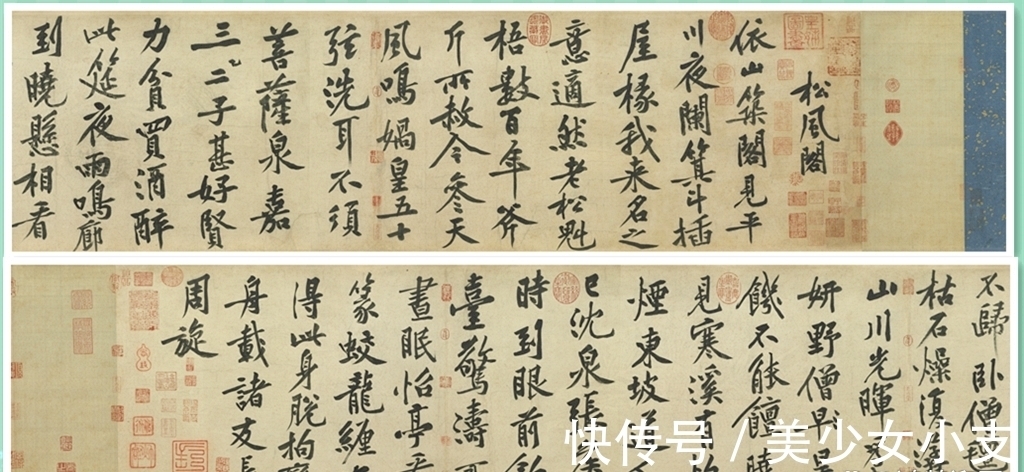 松風閣
依山築閣見平
川夜闌箕斗插
屋椽我来名之
意適然老松魁
梧數百年斧
斤所赦令参天
風鳴媧皇五十
弦洗耳不須
菩薩泉嘉
三二子甚好賢
力貧買酒醉
此筵夜雨鳴廊
到曉懸相看
不歸卧僧
枯石燥復
山川光暉
妍野僧旱
饑不能饘曉
見寒溪
煙東坡道
已沈泉張
時到眼前釣
臺驚濤可
晝眠怡亭看
篆蛟龍纏
得此身脫拘
舟載諸友長
周旋
快传号 / 美少女小支